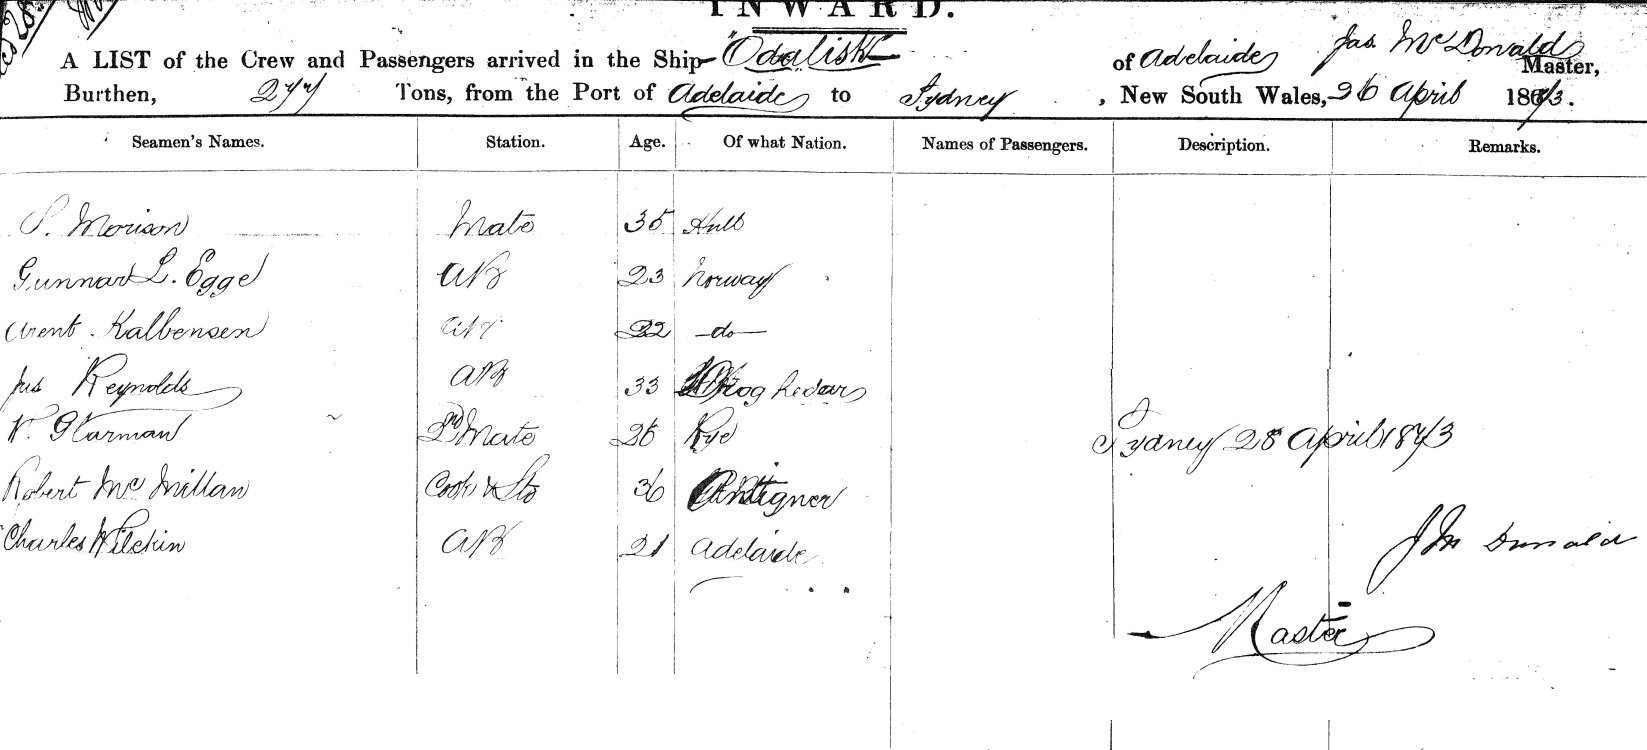 INWARD.
A LIST of the Crew and Passengers arrived in the Ship "Odalisk" of Adelaide Jas. McDonald Master,
Burthen, 277 Tons, from the Port of Adelaide to Sydney, New South Wales, 26 April 1873.
Seamen's Names. Station. Age. Of what Nation. Names of Passengers. Description. Remarks.
Morison Mate 35 Hull
Gunnar L. Egge AB 23 Norway
Arent Kalbensen AB 22 do
Jas Reynolds AB 33
Starman 2nd Mate 26 Rye
Sydney 28 April 1873
Robert McMillan Cook & Std 36
Charles Wilckin AB 21 Adelaide
J McDonald
Master